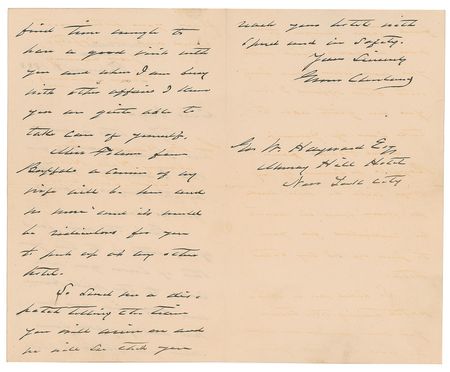 find time enough to
have a good visit with
you and when I am busy
with other affairs I know
you are quite able to
take care of yourself.
Miss Folsom from
Buffalo a cousin of my
wife will be here and
no more and it would
be ridiculous for you
to put up at any other
hotel.
So send me a dis=
patch telling the time
you will arrive and
we will see that you
reach your hotel with
speed and in safety.
Yours Sincerely
Grover Cleveland
Geo W. Hayward Esq
Murray Hill Hotel
New York City